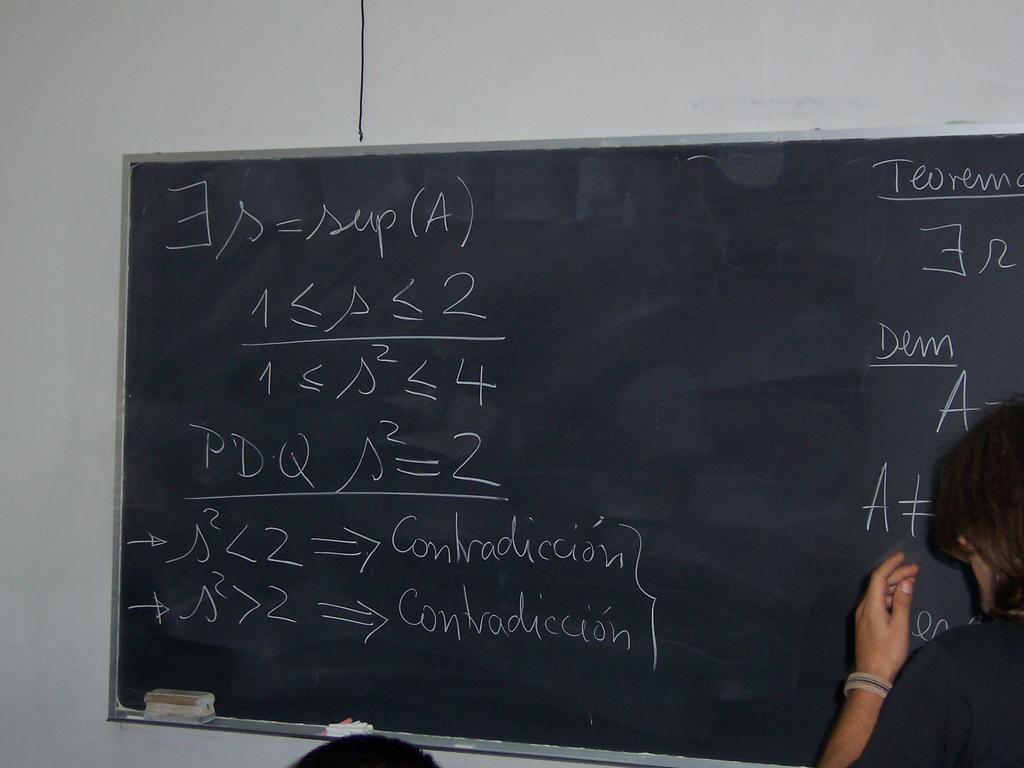 ∃ s = sup(A)
1 ≤ s ≤ 2
1 ≤ s² ≤ 4
P.D.Q s² = 2
→ s² < 2 ⇒ Contradicción
→ s² > 2 ⇒ Contradicción
Teorema
∃ r
Dem
A
A ≠